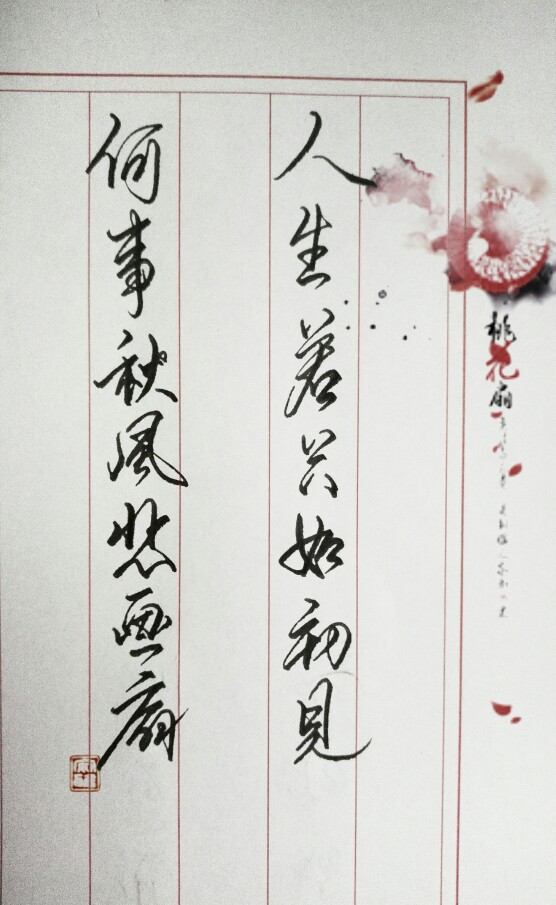 人生若只如初見
何事秋風悲画扇
桃花扇